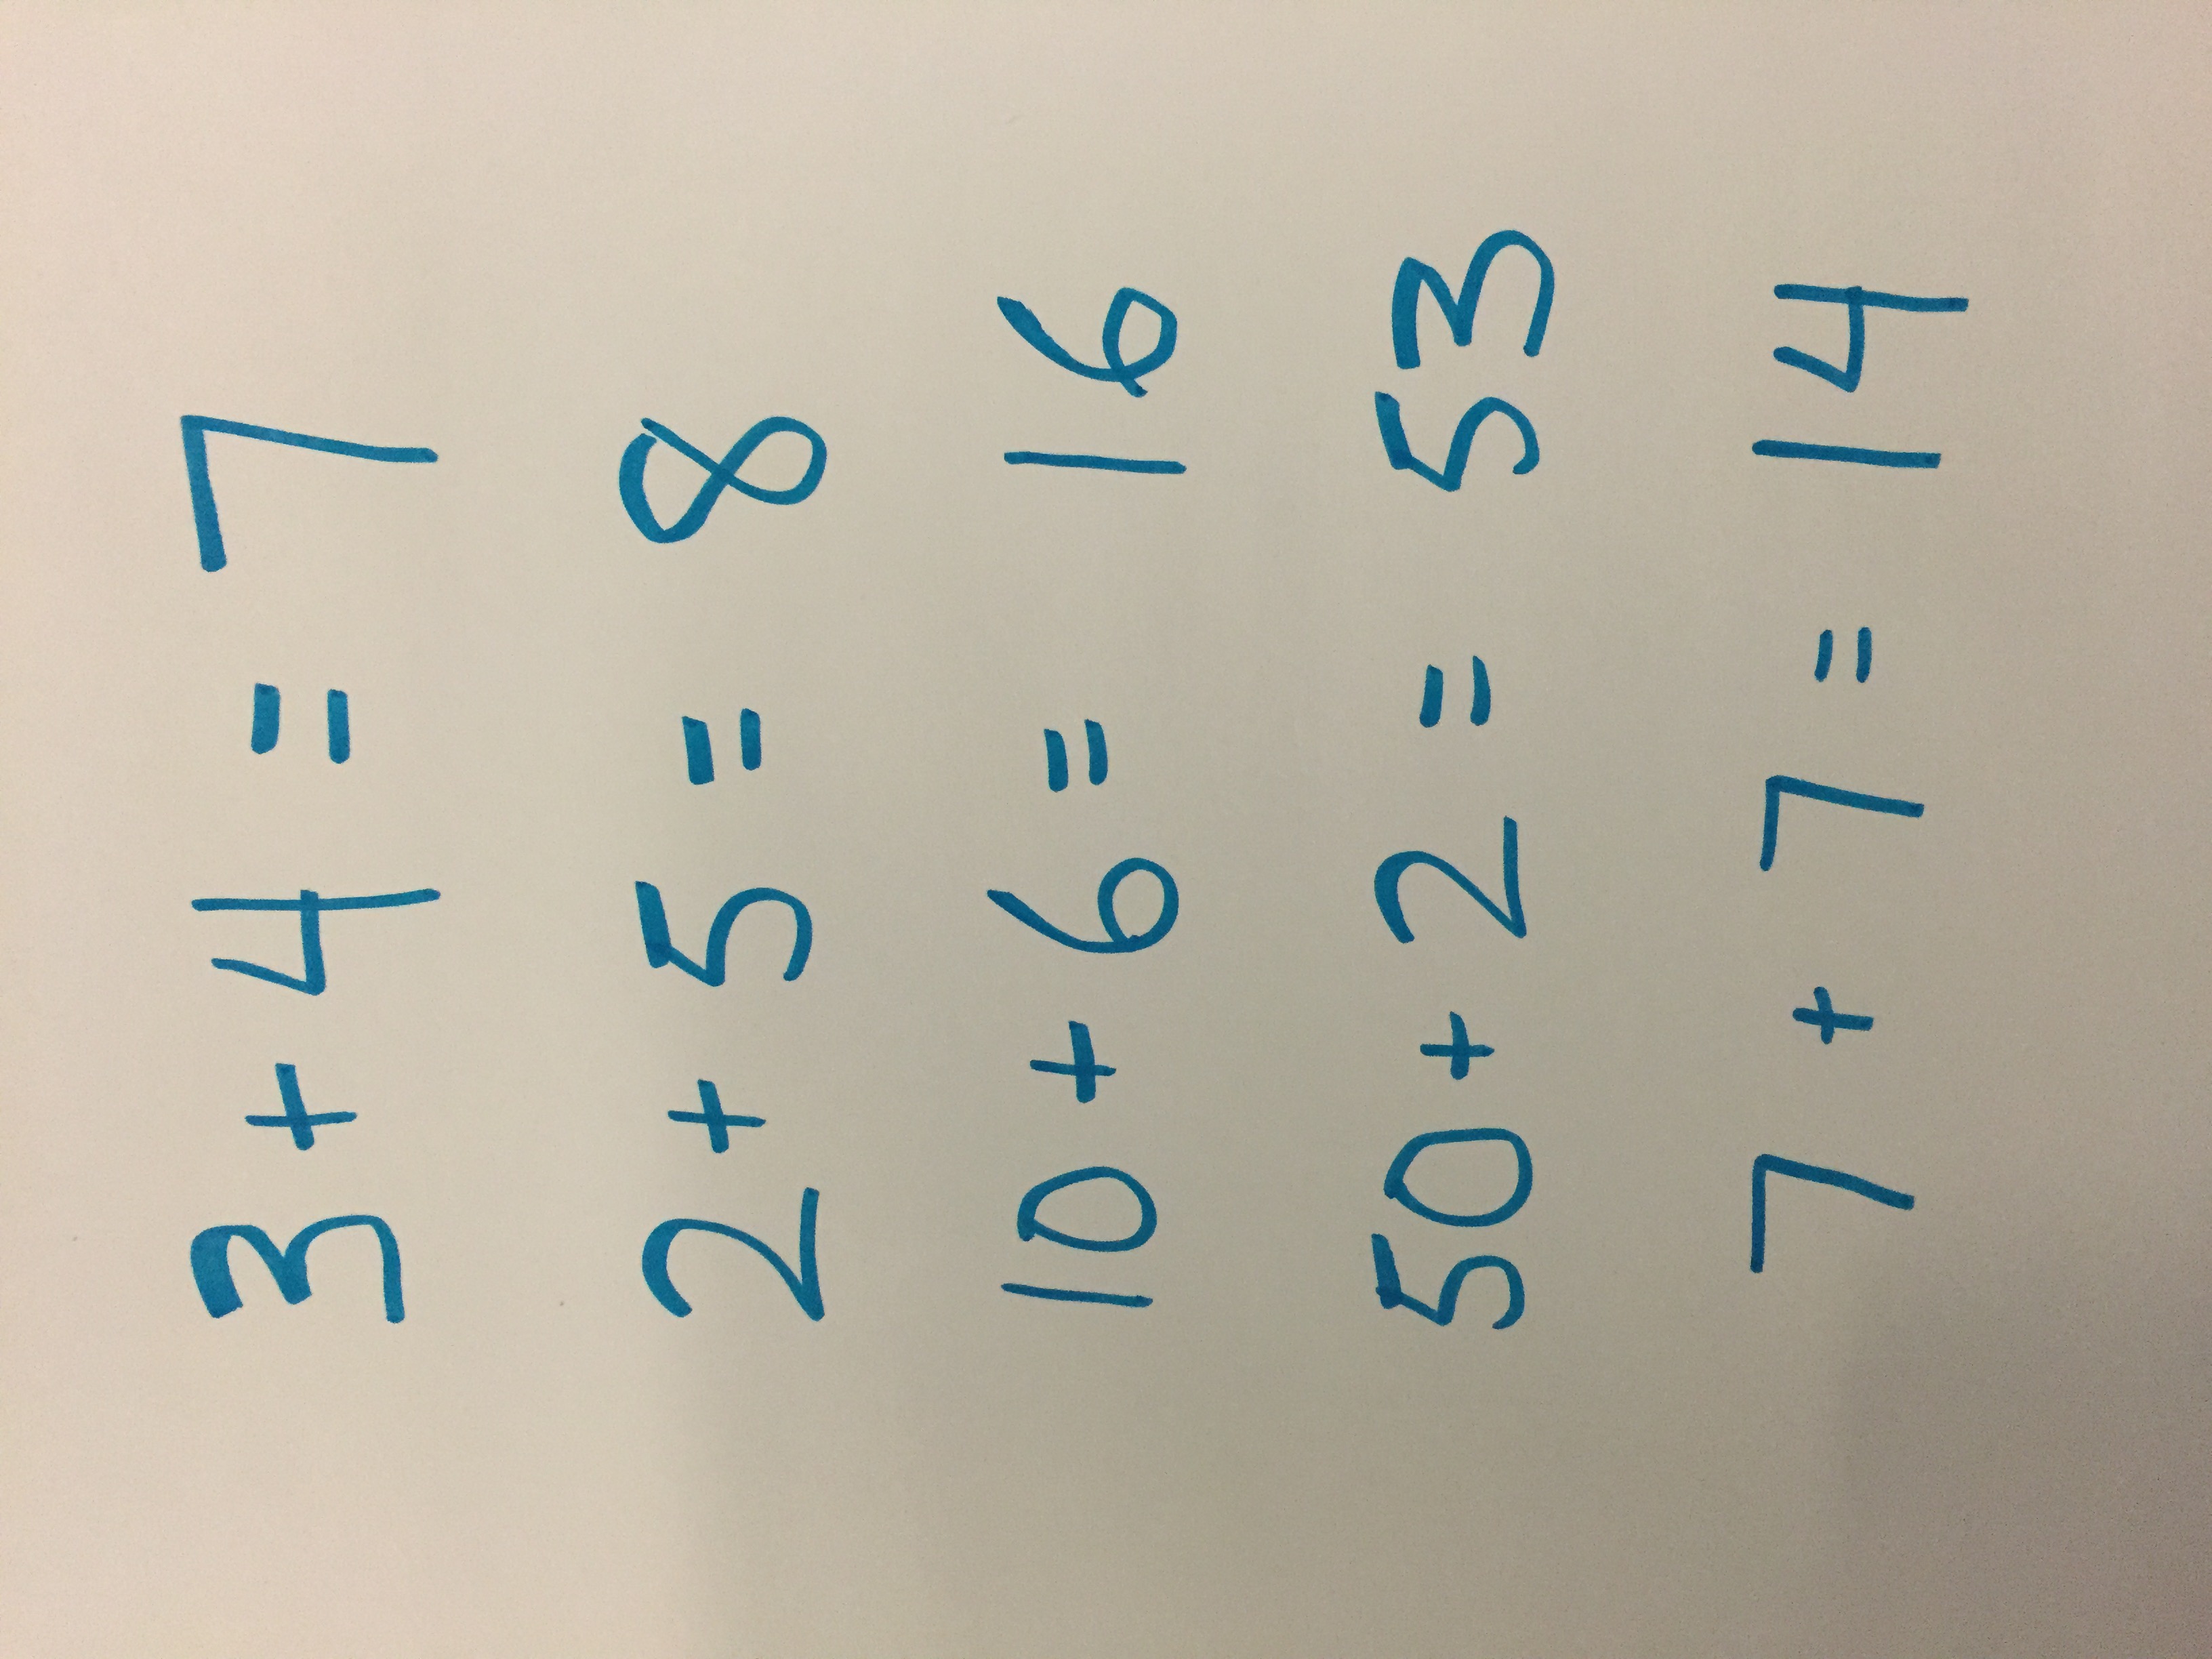 3 + 4 = 7
2 + 5 = 8
10 + 6 = 16
50 + 2 = 53
7 + 7 = 14